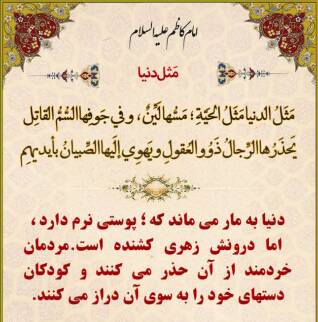 امام کاظم علیه السلام
مَثل دنیا
مَثَلُ الدنیا مَثَلُ الحَیَّةِ؛ مَسُّها لَیِّنٌ، و في جَوفِها السُّمُّ القاتِل
یَحذَرُها الرِّجالُ ذَوُو العُقولِ و یَهوِي إلَیها الصِّبیانُ بأیدیهِم
دنیا به مار می ماند که ؛ پوستی نرم دارد ،
اما درونش زهری کشنده است.مردمان
خردمند از آن حذر می کنند و کودکان
دستهای خود را به سوی آن دراز می کنند.